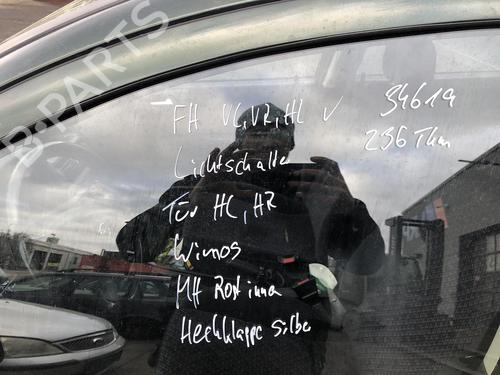 B-PARTS
FH VL, VR, HL ✓ 34619
236 Tkm
Lichtschalter
Tür HL, HR
Wimos
MH Rost innen
Heckklappe Silber